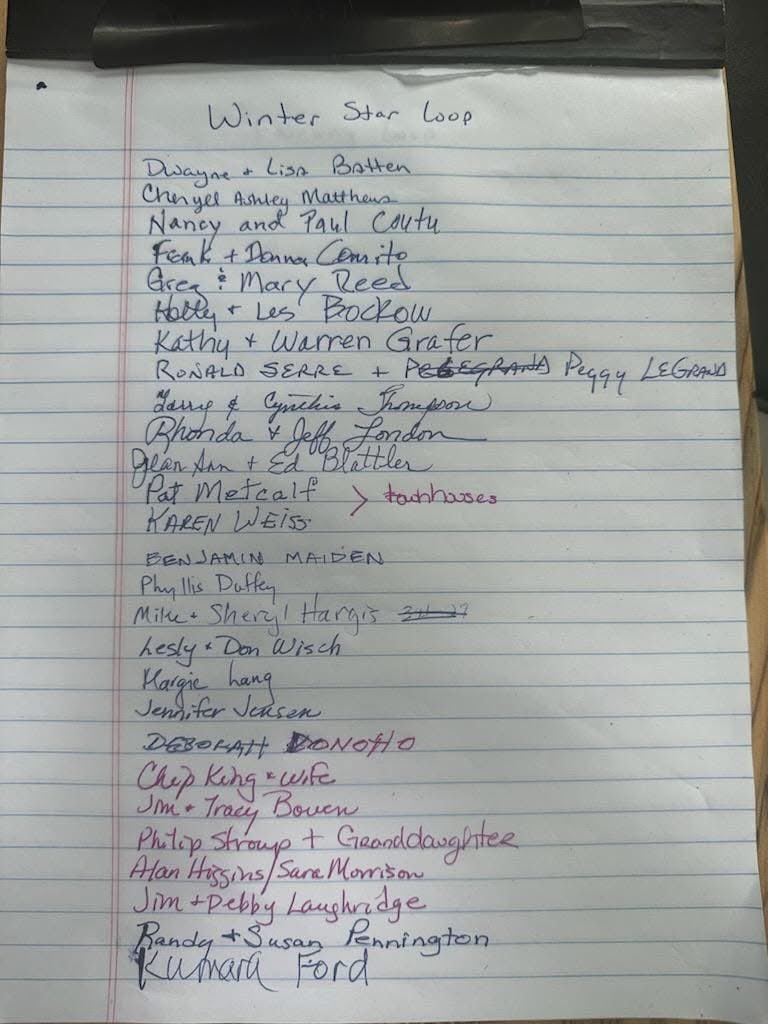 Winter Star Loop
Dwayne + Lisa Batten
Cheryel Ashley Matthews
Nancy and Paul Coutu
Frank + Donna Comito
Greg & Mary Reed
Holly + Les Bockow
Kathy + Warren Grafer
RONALD SERRE + Peggy LEGRAND
Larry & Cynthia Thompson
Rhonda & Jeff London
Jean Ann + Ed Blattler
Pat Metcalf > townhouses
KAREN WEISS
BENJAMIN MAIDEN
Phyllis Duffey
Mike + Sheryl Hargis
Lesly + Don Wisch
Margie Lang
Jennifer Jensen
DEBORAH DONOHO
Chip King + wife
Jim + Tracy Bowen
Philip Stroup + Granddaughter
Alan Higgins/Sara Morrison
Jim + Debby Laughridge
Randy + Susan Pennington
Kumara Ford